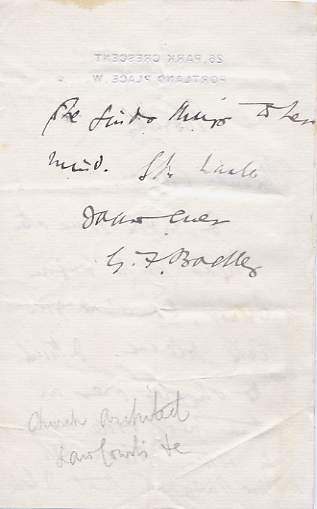 26, PARK CRESCENT
PORTLAND PLACE W
he finds things to her
mind.
Yours ever
G. F. Bodley
Church Architect
Law Courts &c